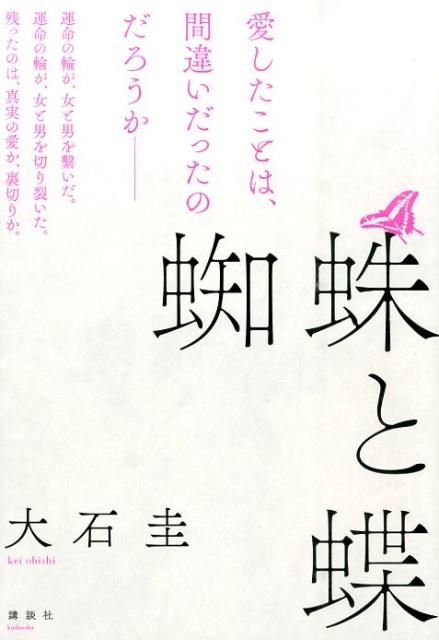 愛したことは、
間違いだったの
だろうか――
運命の輪が、女と男を繋いだ。
運命の輪が、女と男を切り裂いた。
残ったのは、真実の愛か、裏切りか。
蜘蛛と蝶
大石圭
kei ohishi
講談社
kodansha